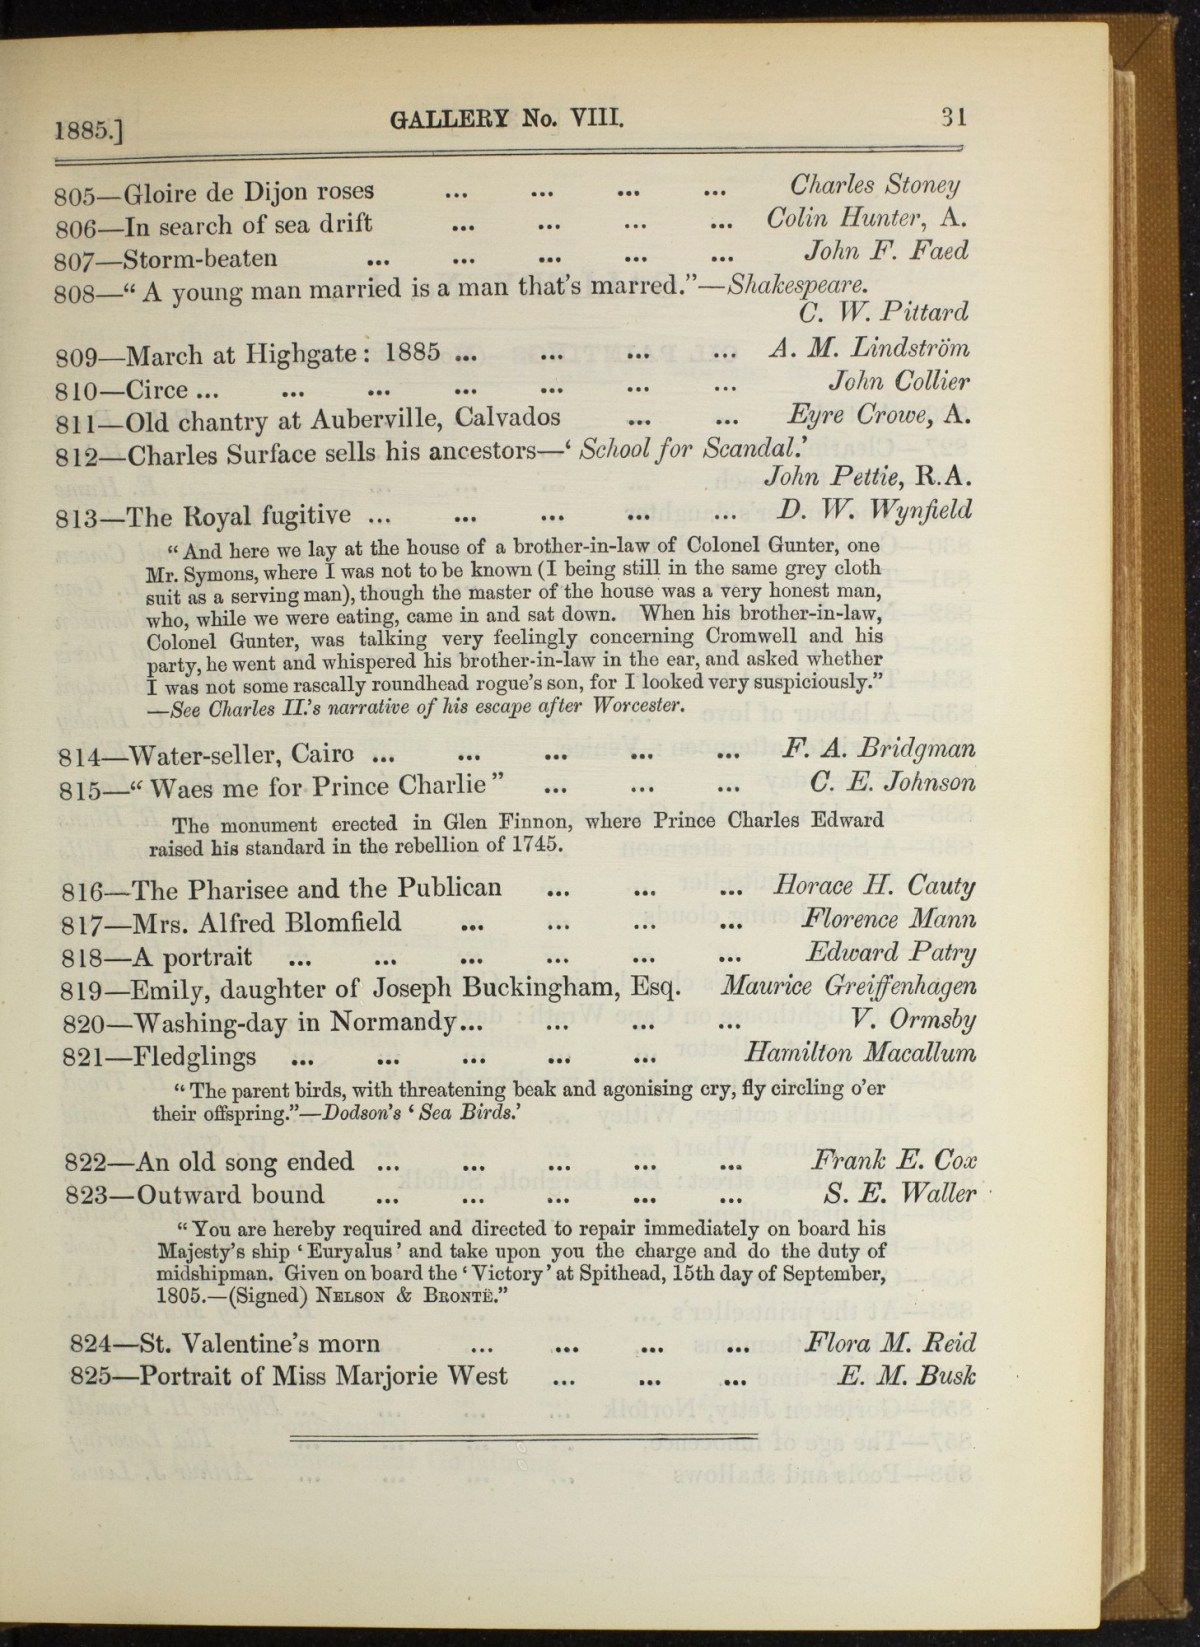 1885.] GALLERY No. VIII. 31
805—Gloire de Dijon roses ... ... ... ... Charles Stoney
806—In search of sea drift ... ... ... ... Colin Hunter, A.
807—Storm-beaten ... ... ... ... ... John F. Faed
808—“ A young man married is a man that's marred.”—Shakespeare.
C. W. Pittard
809—March at Highgate: 1885 ... ... ... ... A. M. Lindström
810—Circe ... ... ... ... ... ... ... John Collier
811—Old chantry at Auberville, Calvados ... ... Eyre Crowe, A.
812—Charles Surface sells his ancestors—‘ School for Scandal.’
John Pettie, R.A.
813—The Royal fugitive ... ... ... ... ... D. W. Wynfield
“ And here we lay at the house of a brother-in-law of Colonel Gunter, one
Mr. Symons, where I was not to be known (I being still in the same grey cloth
suit as a serving man), though the master of the house was a very honest man,
who, while we were eating, came in and sat down. When his brother-in-law,
Colonel Gunter, was talking very feelingly concerning Cromwell and his
party, he went and whispered his brother-in-law in the ear, and asked whether
I was not some rascally roundhead rogue's son, for I looked very suspiciously.”
—See Charles II.'s narrative of his escape after Worcester.
814—Water-seller, Cairo ... ... ... ... ... F. A. Bridgman
815—“ Waes me for Prince Charlie ” ... ... ... C. E. Johnson
The monument erected in Glen Finnon, where Prince Charles Edward
raised his standard in the rebellion of 1745.
816—The Pharisee and the Publican ... ... ... Horace H. Cauty
817—Mrs. Alfred Blomfield ... ... ... ... Florence Mann
818—A portrait ... ... ... ... ... ... Edward Patry
819—Emily, daughter of Joseph Buckingham, Esq. Maurice Greiffenhagen
820—Washing-day in Normandy... ... ... ... V. Ormsby
821—Fledglings ... ... ... ... ... Hamilton Macallum
“ The parent birds, with threatening beak and agonising cry, fly circling o'er
their offspring.”—Dodson's ‘ Sea Birds.’
822—An old song ended ... ... ... ... ... Frank E. Cox
823—Outward bound ... ... ... ... ... S. E. Waller
“ You are hereby required and directed to repair immediately on board his
Majesty's ship ‘ Euryalus ’ and take upon you the charge and do the duty of
midshipman. Given on board the ‘ Victory ’ at Spithead, 15th day of September,
1805.—(Signed) NELSON & BRONTË.”
824—St. Valentine's morn ... ... ... ... Flora M. Reid
825—Portrait of Miss Marjorie West ... ... ... E. M. Busk